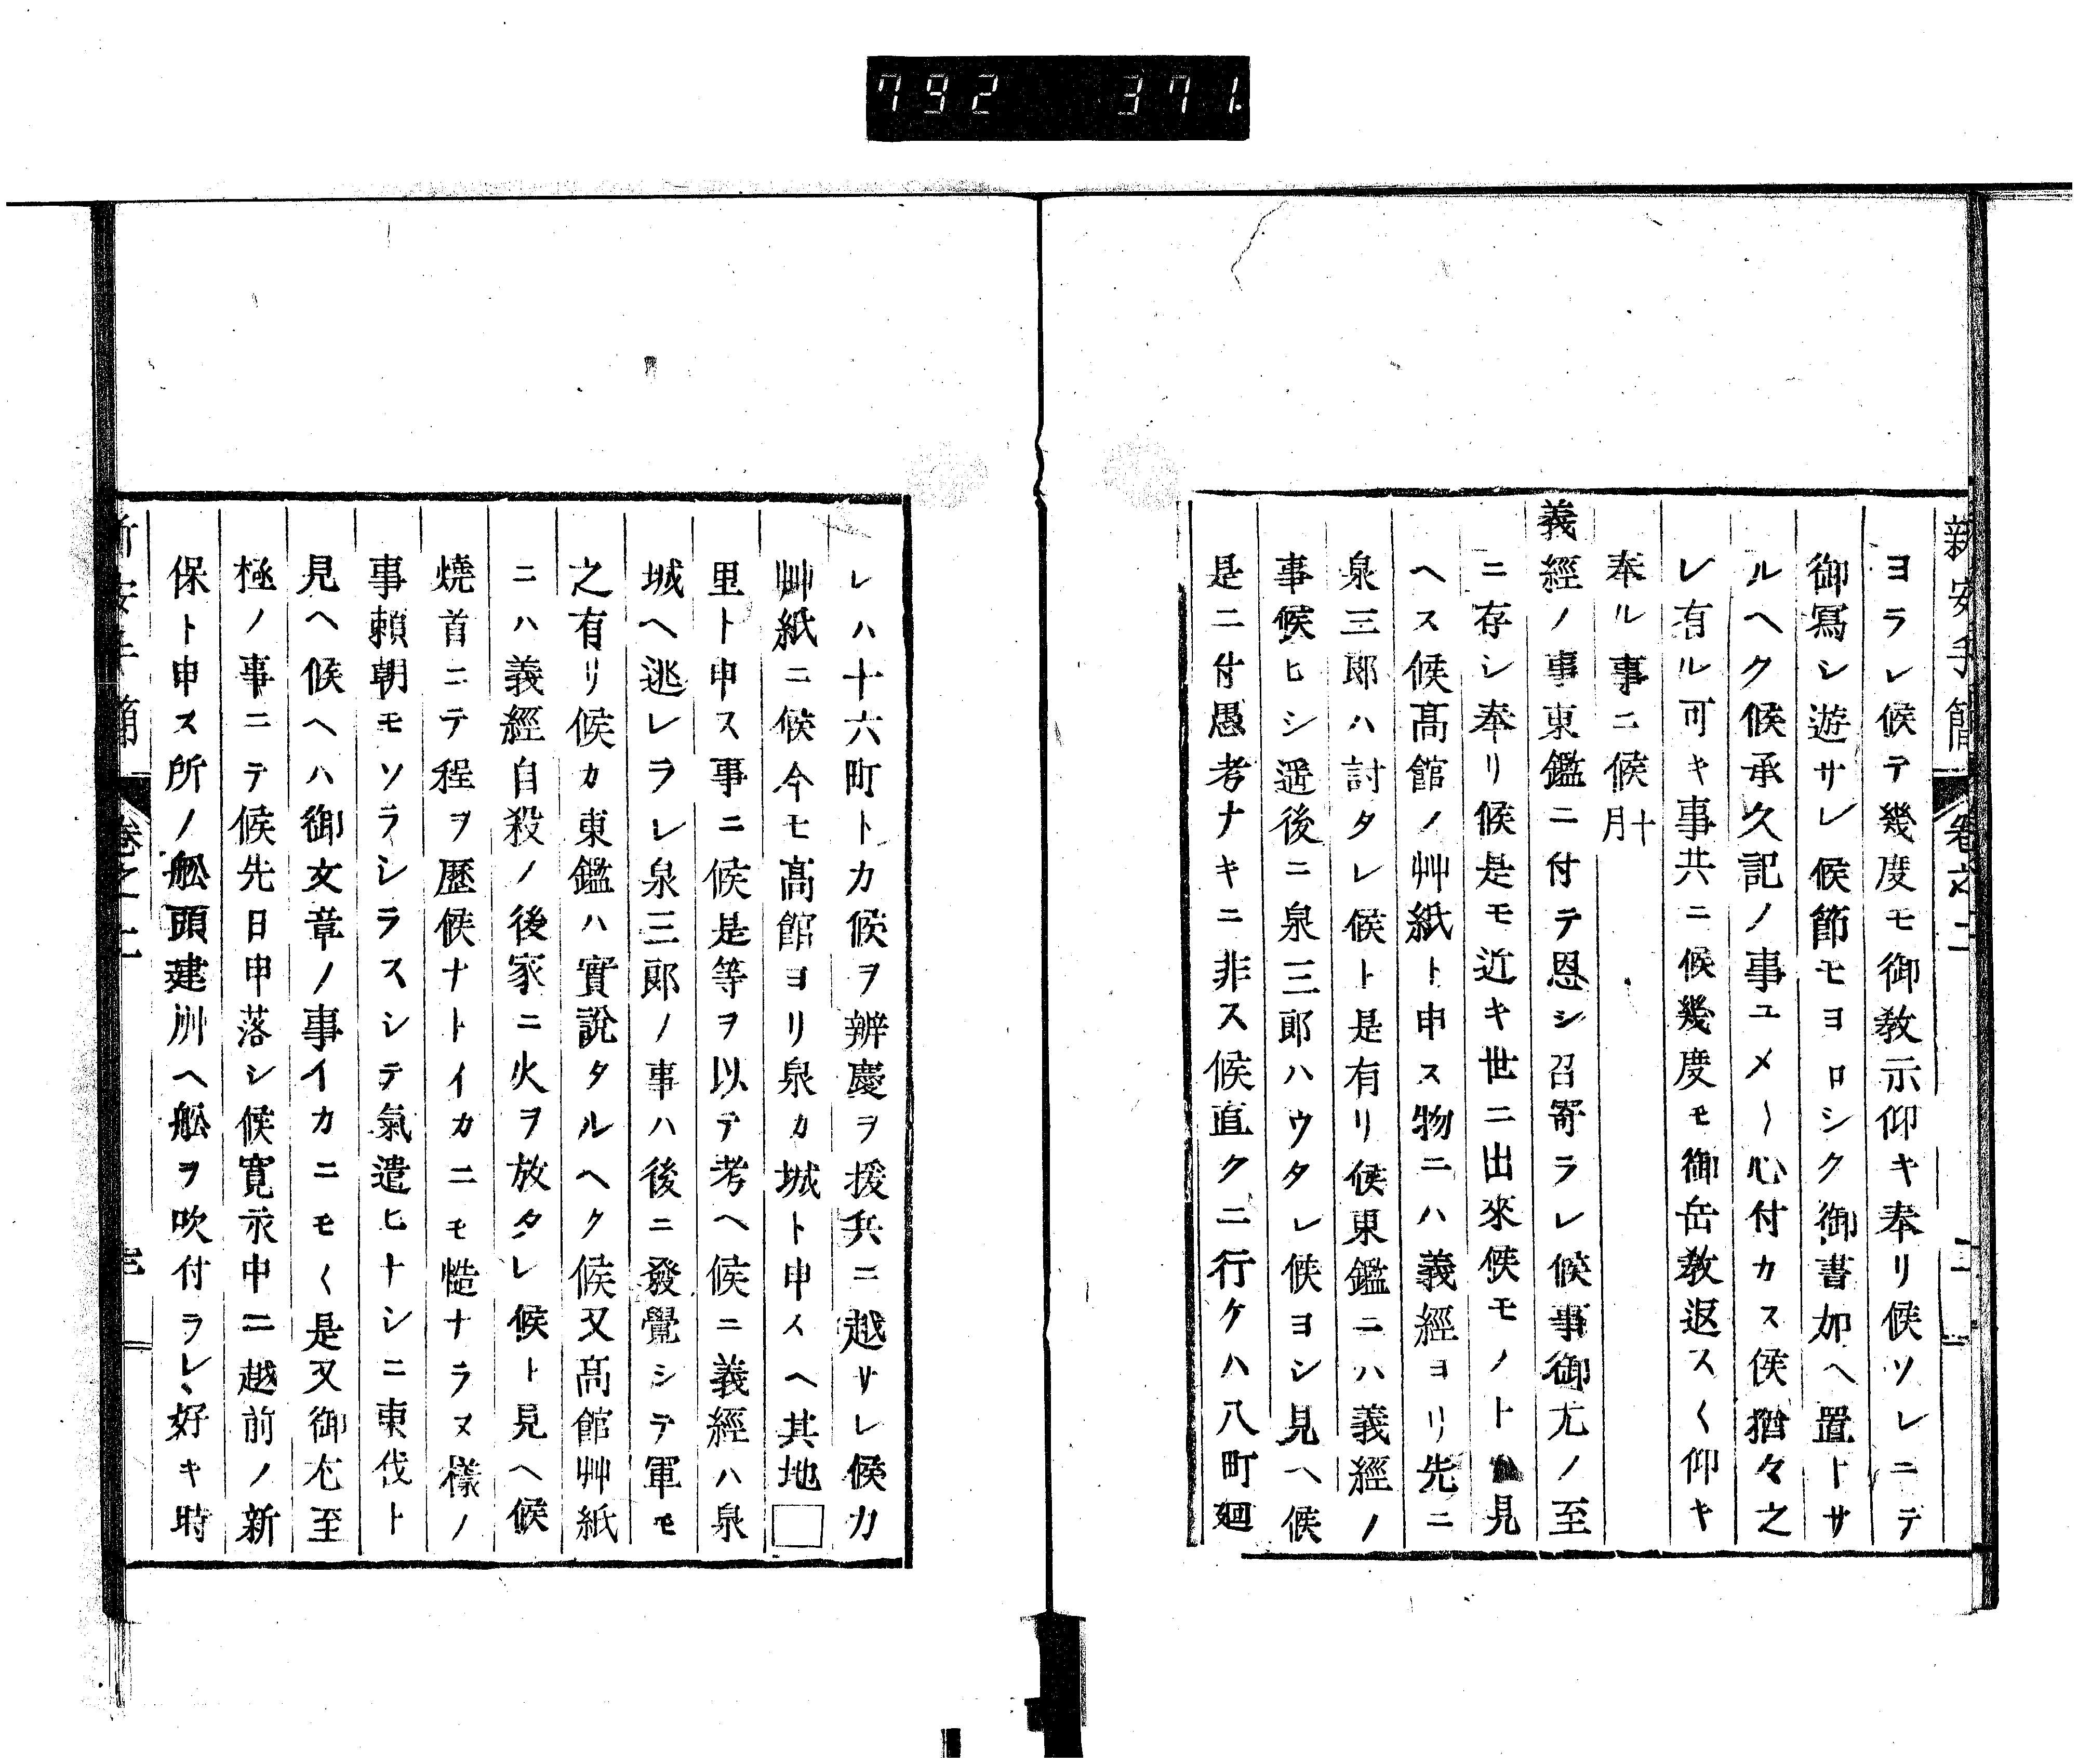 792 371
新安手簡 卷之二 二
ヨラレ候テ幾度モ御教示仰キ奉リ候ソレニテ
御寫シ遊サレ候節モヨロシク御書加ヘ置ートサ
ルヘク候承久記ノ事ユメ〱心付カス候猶々之
レ有ル可キ事共ニ候幾度モ御岳教返ス〱仰キ
奉ル事ニ候十月
義經ノ事東鑑ニ付テ恩シ召寄ラレ候事御尤ノ至
ニ存シ奉リ候是モ近キ世ニ出來候モノトハ見
ヘス候髙館ノ艸紙ト申ス物ニハ義經ヨリ先ニ
泉三郎ハ討タレ候ト是有リ候東鑑ニハ義經ノ
事候ヒシ遥後ニ泉三郎ハウタレ候ヨシ見ヘ候
是ニ付愚考ナキニ非ス候直クニ行ケハ八町廻
レハ十六町トカ候ヲ辨慶ヲ援兵ニ越サレ候カ
艸紙ニ候今モ髙館ヨリ泉カ城ト申スヘ其地□
里ト申ス事ニ候是等ヲ以テ考ヘ候ニ義經ハ泉
城ヘ逃レラレ泉三郎ノ事ハ後ニ發覺シテ軍モ
之有リ候カ東鑑ハ實說タルヘク候又髙館艸紙
ニハ義經自殺ノ後家ニ火ヲ放タレ候ト見ヘ候
燒首ニテ程ヲ歷候ナトイカニモ慥ナラヌ樣ノ
事頼朝モソラシラスシテ氣遣ヒナシニ東伐ト
見ヘ候ヘハ御文章ノ事イカニモ〱是又御尤至
極ノ事ニテ候先日申落シ候寛永中ニ越前ノ新
保ト申ス所ノ舩頭建州ヘ舩ヲ吹付ラレ好キ時
新安手簡 卷之二